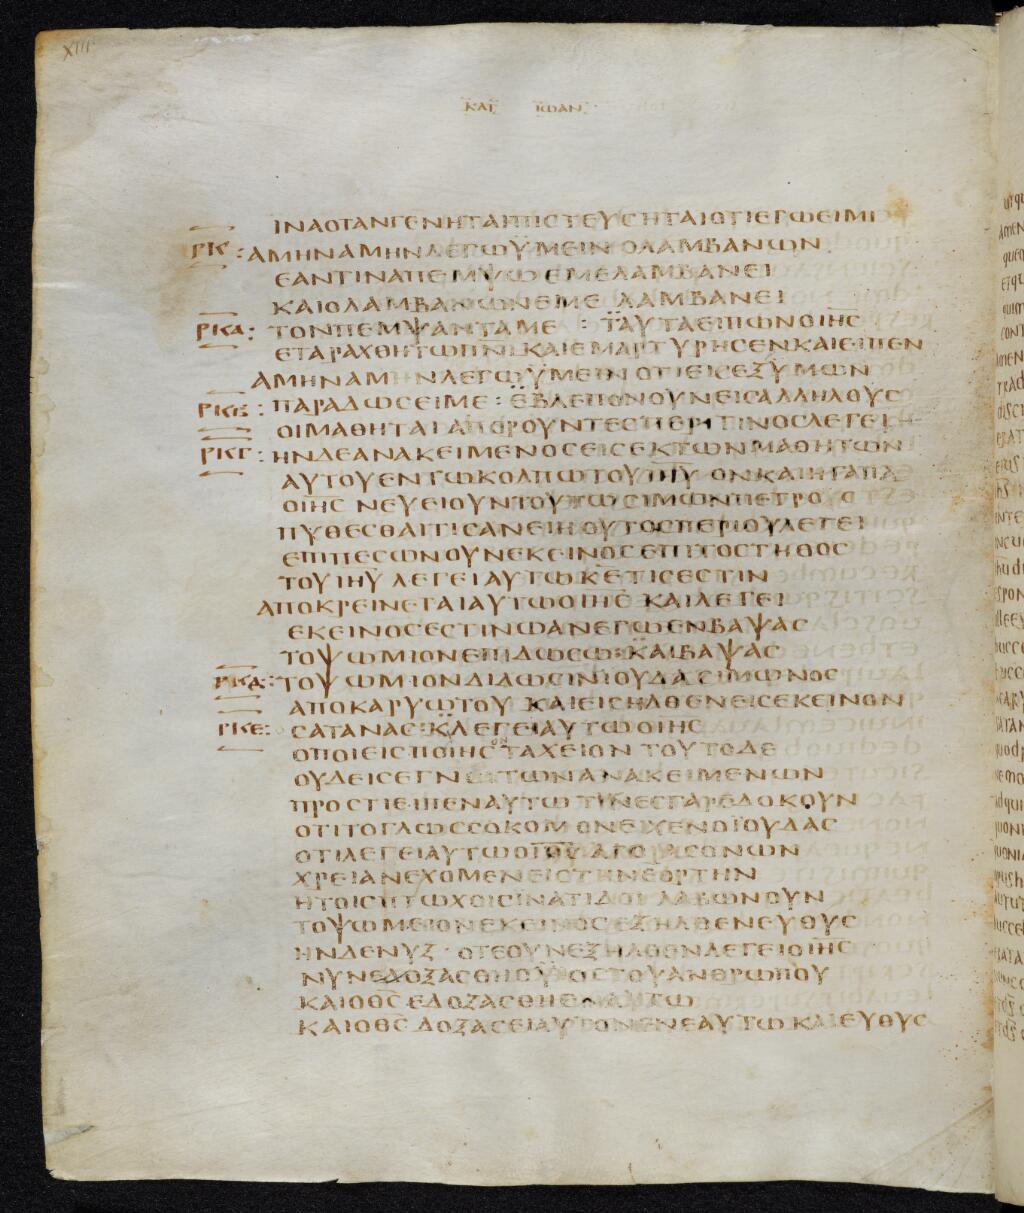 XIII
ΚΑΤ ΙΩΑΝ
ΙΝΑΟΤΑΝΓΕΝΗΤΑΙΠΙΣΤΕΥΣΗΤΑΙΟΤΙΕΓΩΕΙΜΙ
ΡΚ : ΑΜΗΝΑΜΗΝΛΕΓΩΫΜΕΙΝ ΟΛΑΜΒΑΝΩΝ
ΕΑΝΤΙΝΑΠΕΜΨΩΕΜΕΛΑΜΒΑΝΕΙ
ΚΑΙΟΛΑΜΒΑΝΩΝΕΜΕ ΛΑΜΒΑΝΕΙ
ΡΚΑ : ΤΟΝΠΕΜΨΑΝΤΑΜΕ : ΤΑΥΤΑΕΙΠΩΝΟΙΗΣ
ΕΤΑΡΑΧΘΗΤΩΠΝΙΚΑΙΕΜΑΡΤΥΡΗΣΕΝΚΑΙΕΙΠΕΝ
ΑΜΗΝΑΜΗΝΛΕΓΩΫΜΕΙΝΟΤΙΕΙΣΕΞΫΜΩΝ
ΡΚΒ : ΠΑΡΑΔΩΣΕΙΜΕ : ΕΒΛΕΠΟΝΟΥΝΕΙΣΑΛΛΗΛΟΥΣ
ΟΙΜΑΘΗΤΑΙΑΠΟΡΟΥΝΤΕΣΠΕΡΙΤΙΝΟΣΛΕΓΕΙ
ΡΚΓ : ΗΝΔΕΑΝΑΚΕΙΜΕΝΟΣΕΙΣΕΚΤΩΝΜΑΘΗΤΩΝ
ΑΥΤΟΥΕΝΤΩΚΟΛΠΩΤΟΥΙΗΥ ΟΝΚΑΙΗΓΑΠΑ
ΟΙΗΣ ΝΕΥΕΙΟΥΝΤΟΥΤΩΣΙΜΩΝΠΕΤΡΟΣ
ΠΥΘΕΣΘΑΙΤΙΣΑΝΕΙΗΟΥΤΟΣΠΕΡΙΟΥΛΕΓΕΙ
ΕΠΙΠΕΣΩΝΟΥΝΕΚΕΙΝΟΣΕΠΙΤΟΣΤΗΘΟΣ
ΤΟΥΙΗΥ ΛΕΓΕΙΑΥΤΩΚΕΤΙΣΕΣΤΙΝ
ΑΠΟΚΡΕΙΝΕΤΑΙΑΥΤΩΟΙΗΣ ΚΑΙΛΕΓΕΙ
ΕΚΕΙΝΟΣΕΣΤΙΝΩΑΝΕΓΩΕΝΒΑΨΑΣ
ΤΟΨΩΜΙΟΝΕΠΙΔΩΣΩ : ΚΑΙΒΑΨΑΣ
ΡΚΔ : ΤΟΨΩΜΙΟΝΔΙΔΩΣΙΝΙΟΥΔΑΣΙΜΩΝΟΣ
ΑΠΟΚΑΡΥΩΤΟΥ ΚΑΙΕΙΣΗΛΘΕΝΕΙΣΕΚΕΙΝΟΝ
ΡΚΕ : ΟΣΑΤΑΝΑΣ : ΚΛΕΓΕΙΑΥΤΩΟΙΗΣ
ΟΠΟΙΕΙΣΠΟΙΗΣΟΝΤΑΧΕΙΟΝ ΤΟΥΤΟΔΕ
ΟΥΔΕΙΣΕΓΝΩΤΩΝΑΝΑΚΕΙΜΕΝΩΝ
ΠΡΟΣΤΙΕΙΠΕΝΑΥΤΩ ΤΙΝΕΣΓΑΡΕΔΟΚΟΥΝ
ΟΤΙΤΟΓΛΩΣΣΟΚΟΜΟΝΕΙΧΕΝΟΪΟΥΔΑΣ
ΟΤΙΛΕΓΕΙΑΥΤΩΟΙΗΣ ΑΓΟΡΑΣΟΝΩΝ
ΧΡΕΙΑΝΕΧΟΜΕΝΕΙΣΤΗΝΕΟΡΤΗΝ
ΗΤΟΙΣΠΤΩΧΟΙΣΙΝΑΤΙΔΟΙ ΛΑΒΩΝΟΥΝ
ΤΟΨΩΜΕΙΟΝΕΚΕΙΝΟΣΕΞΗΛΘΕΝΕΥΘΥΣ
ΗΝΔΕΝΥΞ · ΟΤΕΟΥΝΕΞΗΛΘΕΝΛΕΓΕΙΟΙΗΣ
ΝΥΝΕΔΟΞΑΣΘΗΟΫΙΟΣΤΟΥΑΝΘΡΩΠΟΥ
ΚΑΙΟΘΣ ΕΔΟΞΑΣΘΗΕΝΑΥΤΩ
ΚΑΙΟΘΣ ΔΟΞΑΣΕΙΑΥΤΟΝΕΝΕΑΥΤΩΚΑΙΕΥΘΥΣ